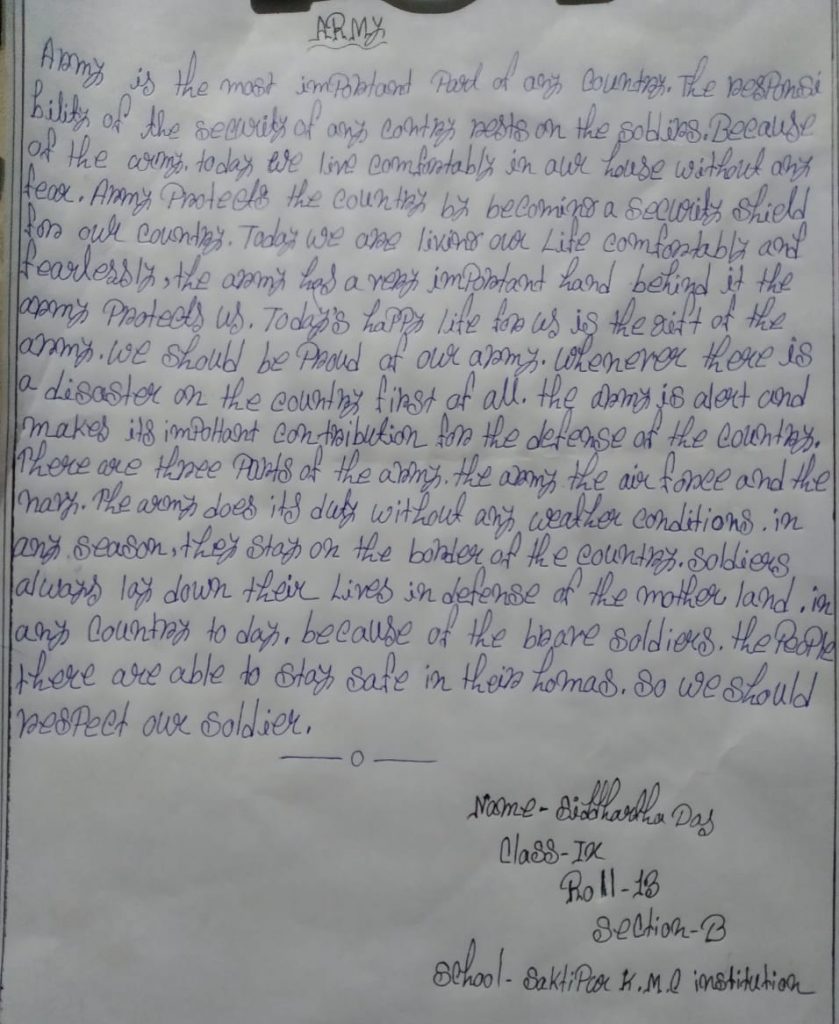 ARMY
Army is the most important Part of any Country. The responsi
bility of the security of any contry rests on the soldiers. Because
of the army. today we live comfortably in our house without any
fear. Army Protects the country by becoming a security shield
for our country. Today we are living our Life comfortably and
fearlessly, the army has a very important hand behind it the
army Protects us. Today's happy life for us is the gift of the
army. We should be Proud of our army. Whenever there is
a disaster on the country first of all. the army is alert and
makes its important contribution for the defense of the country.
There are three Parts of the army. the army the air force and the
navy. The army does its duty without any weather conditions. in
any season, they stay on the border of the country. soldiers
always lay down their Lives in defense of the mother land. in
any Country to day. because of the brave soldiers. the People
there are able to stay safe in their homas. So we should
respect our soldier.
— o —
Name - Siddhartha Das
Class - IX
Roll - 13
Section - B
School - SaktiPur K.M.C institution